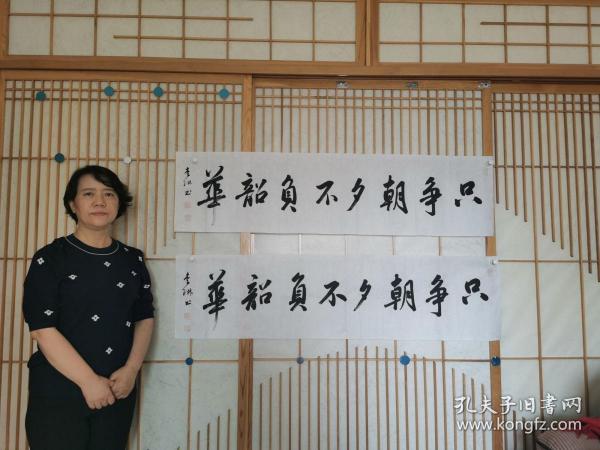 只争朝夕不負韶華
只争朝夕不負韶華
孔夫子旧書网
www.kongfz.com